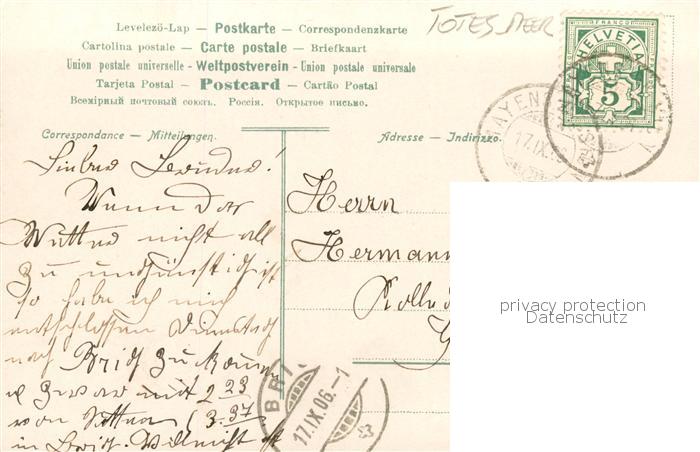 TOTES MEER
Levelező-Lap — Postkarte — Correspondenzkarte
Cartolina postale — Carte postale — Briefkaart
Union postale universelle - Weltpostverein - Union postale universale
Tarjeta Postal — Postcard — Cartão Postal
Всемірный почтовый союзъ. Россія. Открытое письмо.
FRANCO
HELVETIA
5
MAYEN
17.IX.06
Correspondance — Mitteilungen.
Adresse — Indirizzo.
Lieber Bruder!
Wenn das
Wetter nicht all
zu ungünstig ist
so habe ich mich
entschlossen Dienstag
nach Brig zu kommen
u zwar mit 2 23
von (3.37
in Brig. Vielleicht ist
Herrn
Hermann
BRI
17.IX.06.-1
privacy protection
Datenschutz